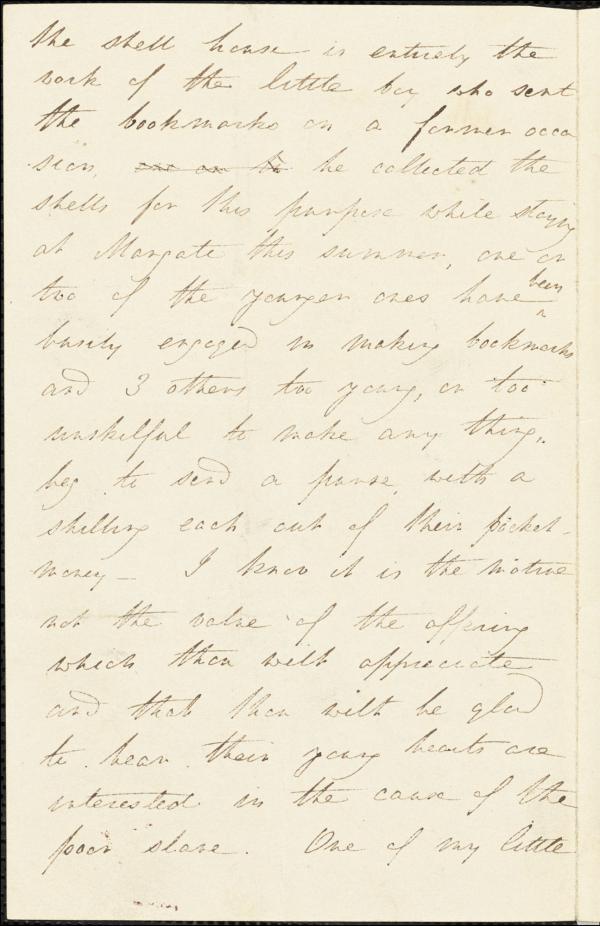 the shell house is entirely the
work of the little boy who sent
the bookmarks on a former occa
sion, one or to he collected the
shells for this purpose while staying
at Margate this summer, one or
two of the younger ones have been
busily engaged in making bookmarks
and 3 others too young, or too
unskilful to make any thing,
beg to send a purse, with a
shilling each out of their pocket-
money — I know it is the motive
not the value of the offering
which thou wilt appreciate
and that thou wilt be glad
to hear their young hearts are
interested in the cause of the
poor slave. One of my little